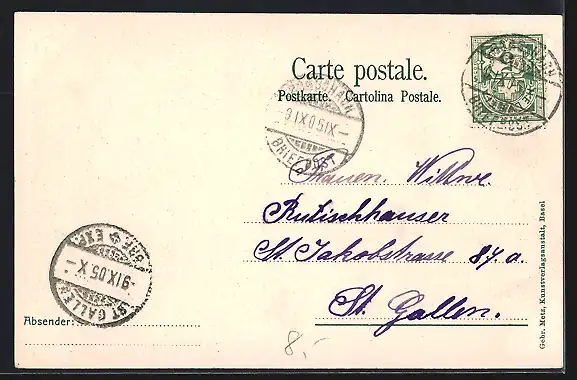 Carte postale.
Postkarte. Cartolina Postale.
9 IX 05 IX
BRIEFPOST
Frauen. Witwe
Rutischhauser
St. Jakobstrasse 87 a.
St. Gallen.
ST. GALLEN
-9 IX 05 X-
BRF. EXP.
Absender:
8,-
Gebr. Metz, Kunstverlagsanstalt, Basel